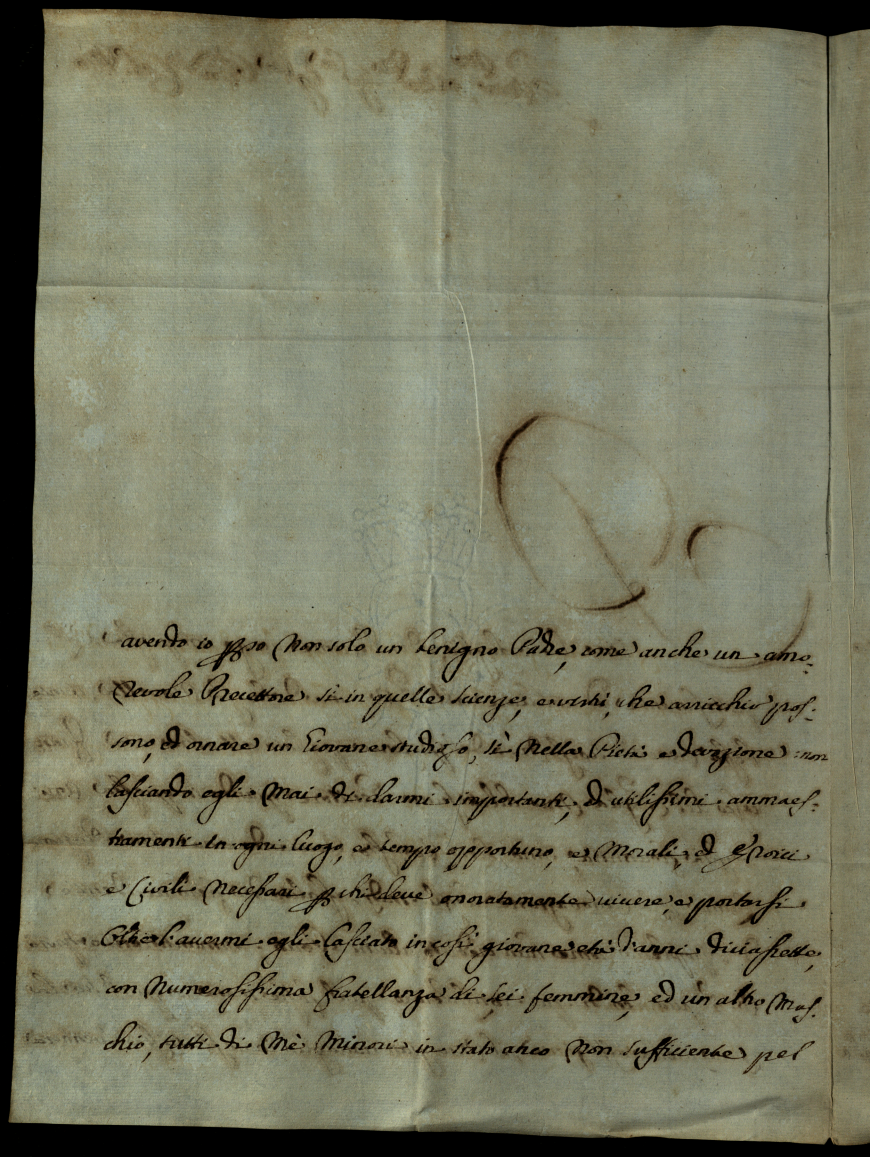 avendo io ꝑso Non solo un benigno Padre, come anche un amo:
revole Precettore sì in quelle scienze, e virtù, che arricchir pos:
sono, ed ornare un Giovane studioso, sì Nella Pietà e devozione: non
lasciando egli Mai di darmi importanti, ed utilissimi ammaes:
tramenti in ogni luogo, e tempo opportuno, e Morali, ed Eroici
e Civili Necessari ꝑ chi deve onoratamente vivere, e portarsi.
Oltre l'avermi egli lasciato in così giovane età d'anni diciassette,
con Numerosissima fratellanza di sei femmine, ed un altro Mas:
chio, tutti di Mè Minori in stato anco Non sufficiente pel